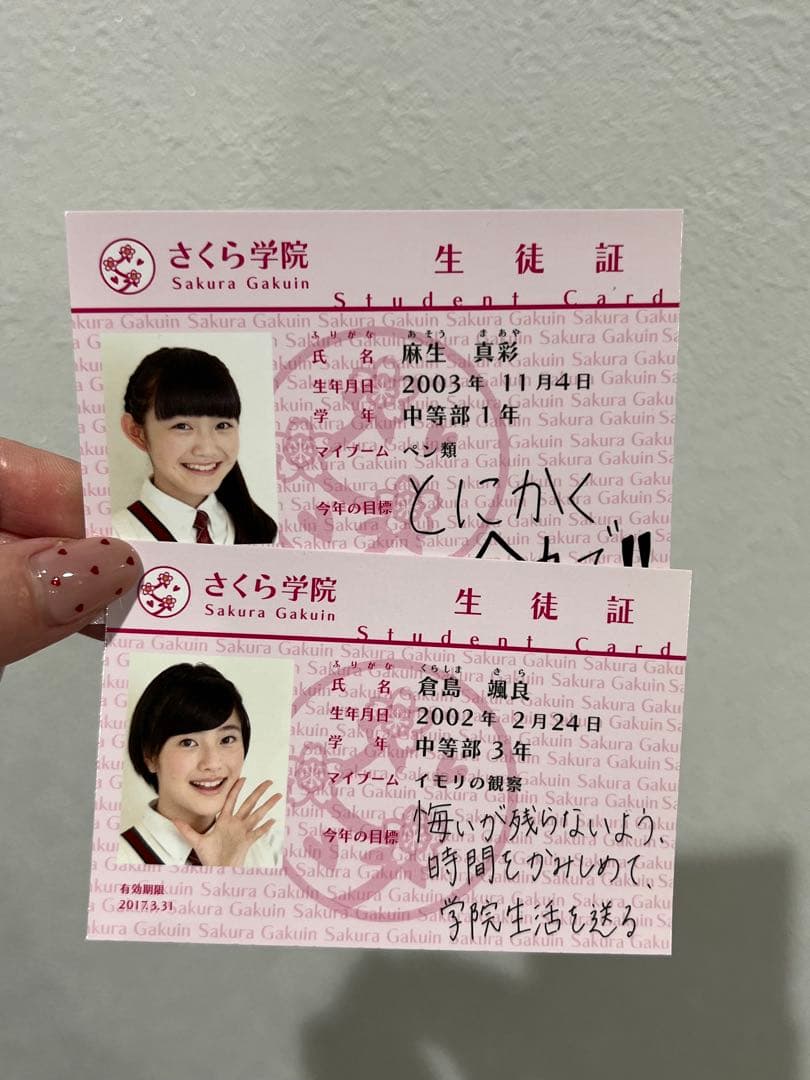 さくら学院
Sakura Gakuin
生徒証
Student Card
ふりがな あそう まあや
氏名 麻生 真彩
生年月日 2003年 11月4日
学年 中等部1年
マイブーム ペン類
今年の目標 とにかく
さくら学院
Sakura Gakuin
生徒証
Student Card
ふりがな くらしま さら
氏名 倉島 颯良
生年月日 2002年 2月24日
学年 中等部3年
マイブーム イモリの観察
今年の目標 悔いが残らないよう、
時間をかみしめて、
学院生活を送る
有効期限
2017.3.31